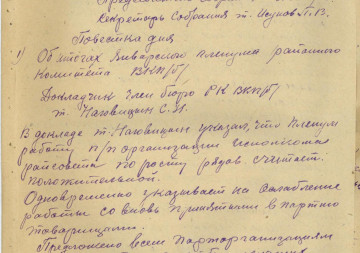 Секретарь Собрания т. П.В.
Повестка дня
1) Об итогах Январского пленума районного
Комитета ВКП/б/
Докладчик член бюро РК ВКП/б/
т. Наговицын С.И.
В докладе т. Наговицын указал, что пленум
работу п/парторганизации исполкома
райсовета по росту рядов считает
положительной.
Одновременно указывает на ослабление
работы со вновь принятыми в партию
товарищами.
Предложено всем парторганизациям